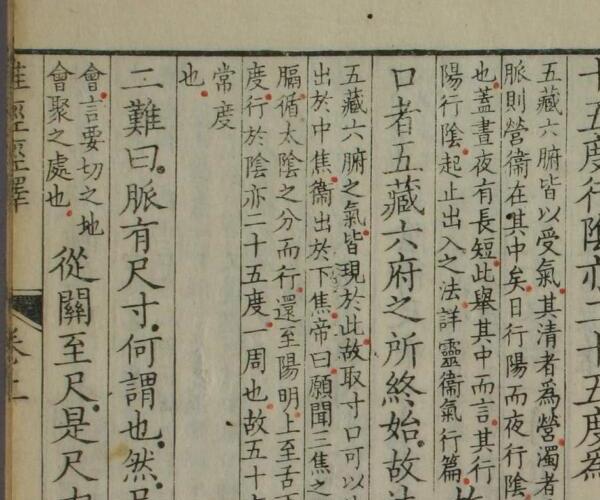 十五度行陰亦二十五度為
五藏六腑皆以受氣其清者為營濁者
脈則營衞在其中矣日行陽而夜行陰
也蓋晝夜有長短此舉其中而言其行
陽行陰起止出入之法詳靈衞氣行篇
口者五藏六府之所終始故法
五藏六腑之氣皆現於此故取寸口可以
出於中焦衞出於下焦帝曰願聞三焦之
膈循太陰之分而行還至陽明上至舌
度行於陰亦二十五度一周也故五十
常度
也
二難曰脈有尺寸何謂也然尺
會言要切之地
會聚之處也
從關至尺是尺
難經經釋 卷上